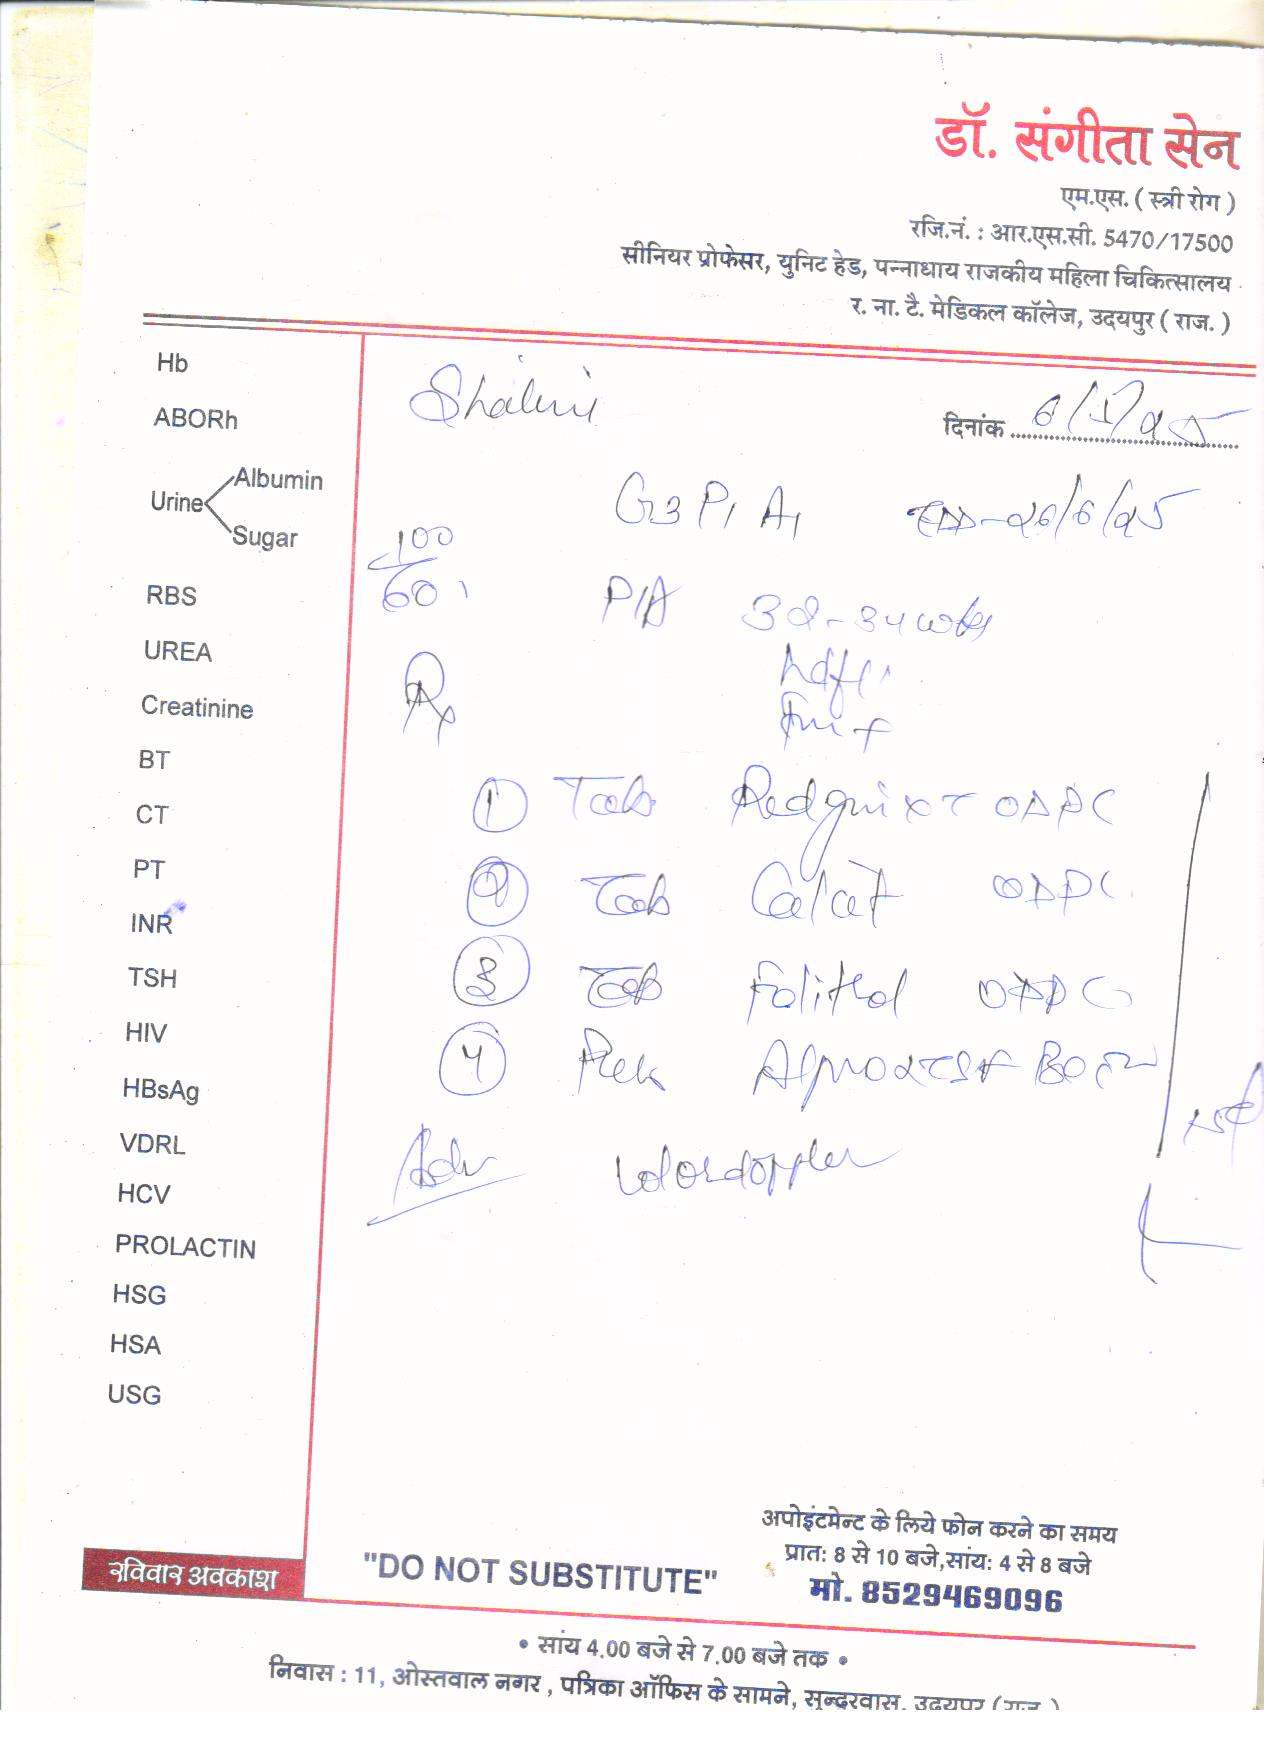 डॉ. संगीता सेन
एम.एस. ( स्त्री रोग )
रजि.नं. : आर.एस.सी. 5470/17500
सीनियर प्रोफेसर, युनिट हेड, पन्नाधाय राजकीय महिला चिकित्सालय
र. ना. टै. मेडिकल कॉलेज, उदयपुर ( राज. )
Hb
ABORh
Urine Albumin
Sugar
RBS
UREA
Creatinine
BT
CT
PT
INR
TSH
HIV
HBsAg
VDRL
HCV
PROLACTIN
HSG
HSA
USG
Shalini
दिनांक 6/5/25
G3 P1 A1 EDD-26/6/25
100/60
P/A 32-34 wks
Rx
① Tab ODPC
② Tab Calcat ODPC
③ Tab ODPC
④
Adv Colordoppler
रविवार अवकाश
"DO NOT SUBSTITUTE"
अपोइंटमेन्ट के लिये फोन करने का समय
प्रात: 8 से 10 बजे,सांय: 4 से 8 बजे
मो. 8529469096
• सांय 4.00 बजे से 7.00 बजे तक •
निवास : 11, ओस्तवाल नगर , पत्रिका ऑफिस के सामने, सुन्दरवास, उदयपुर ( राज. )